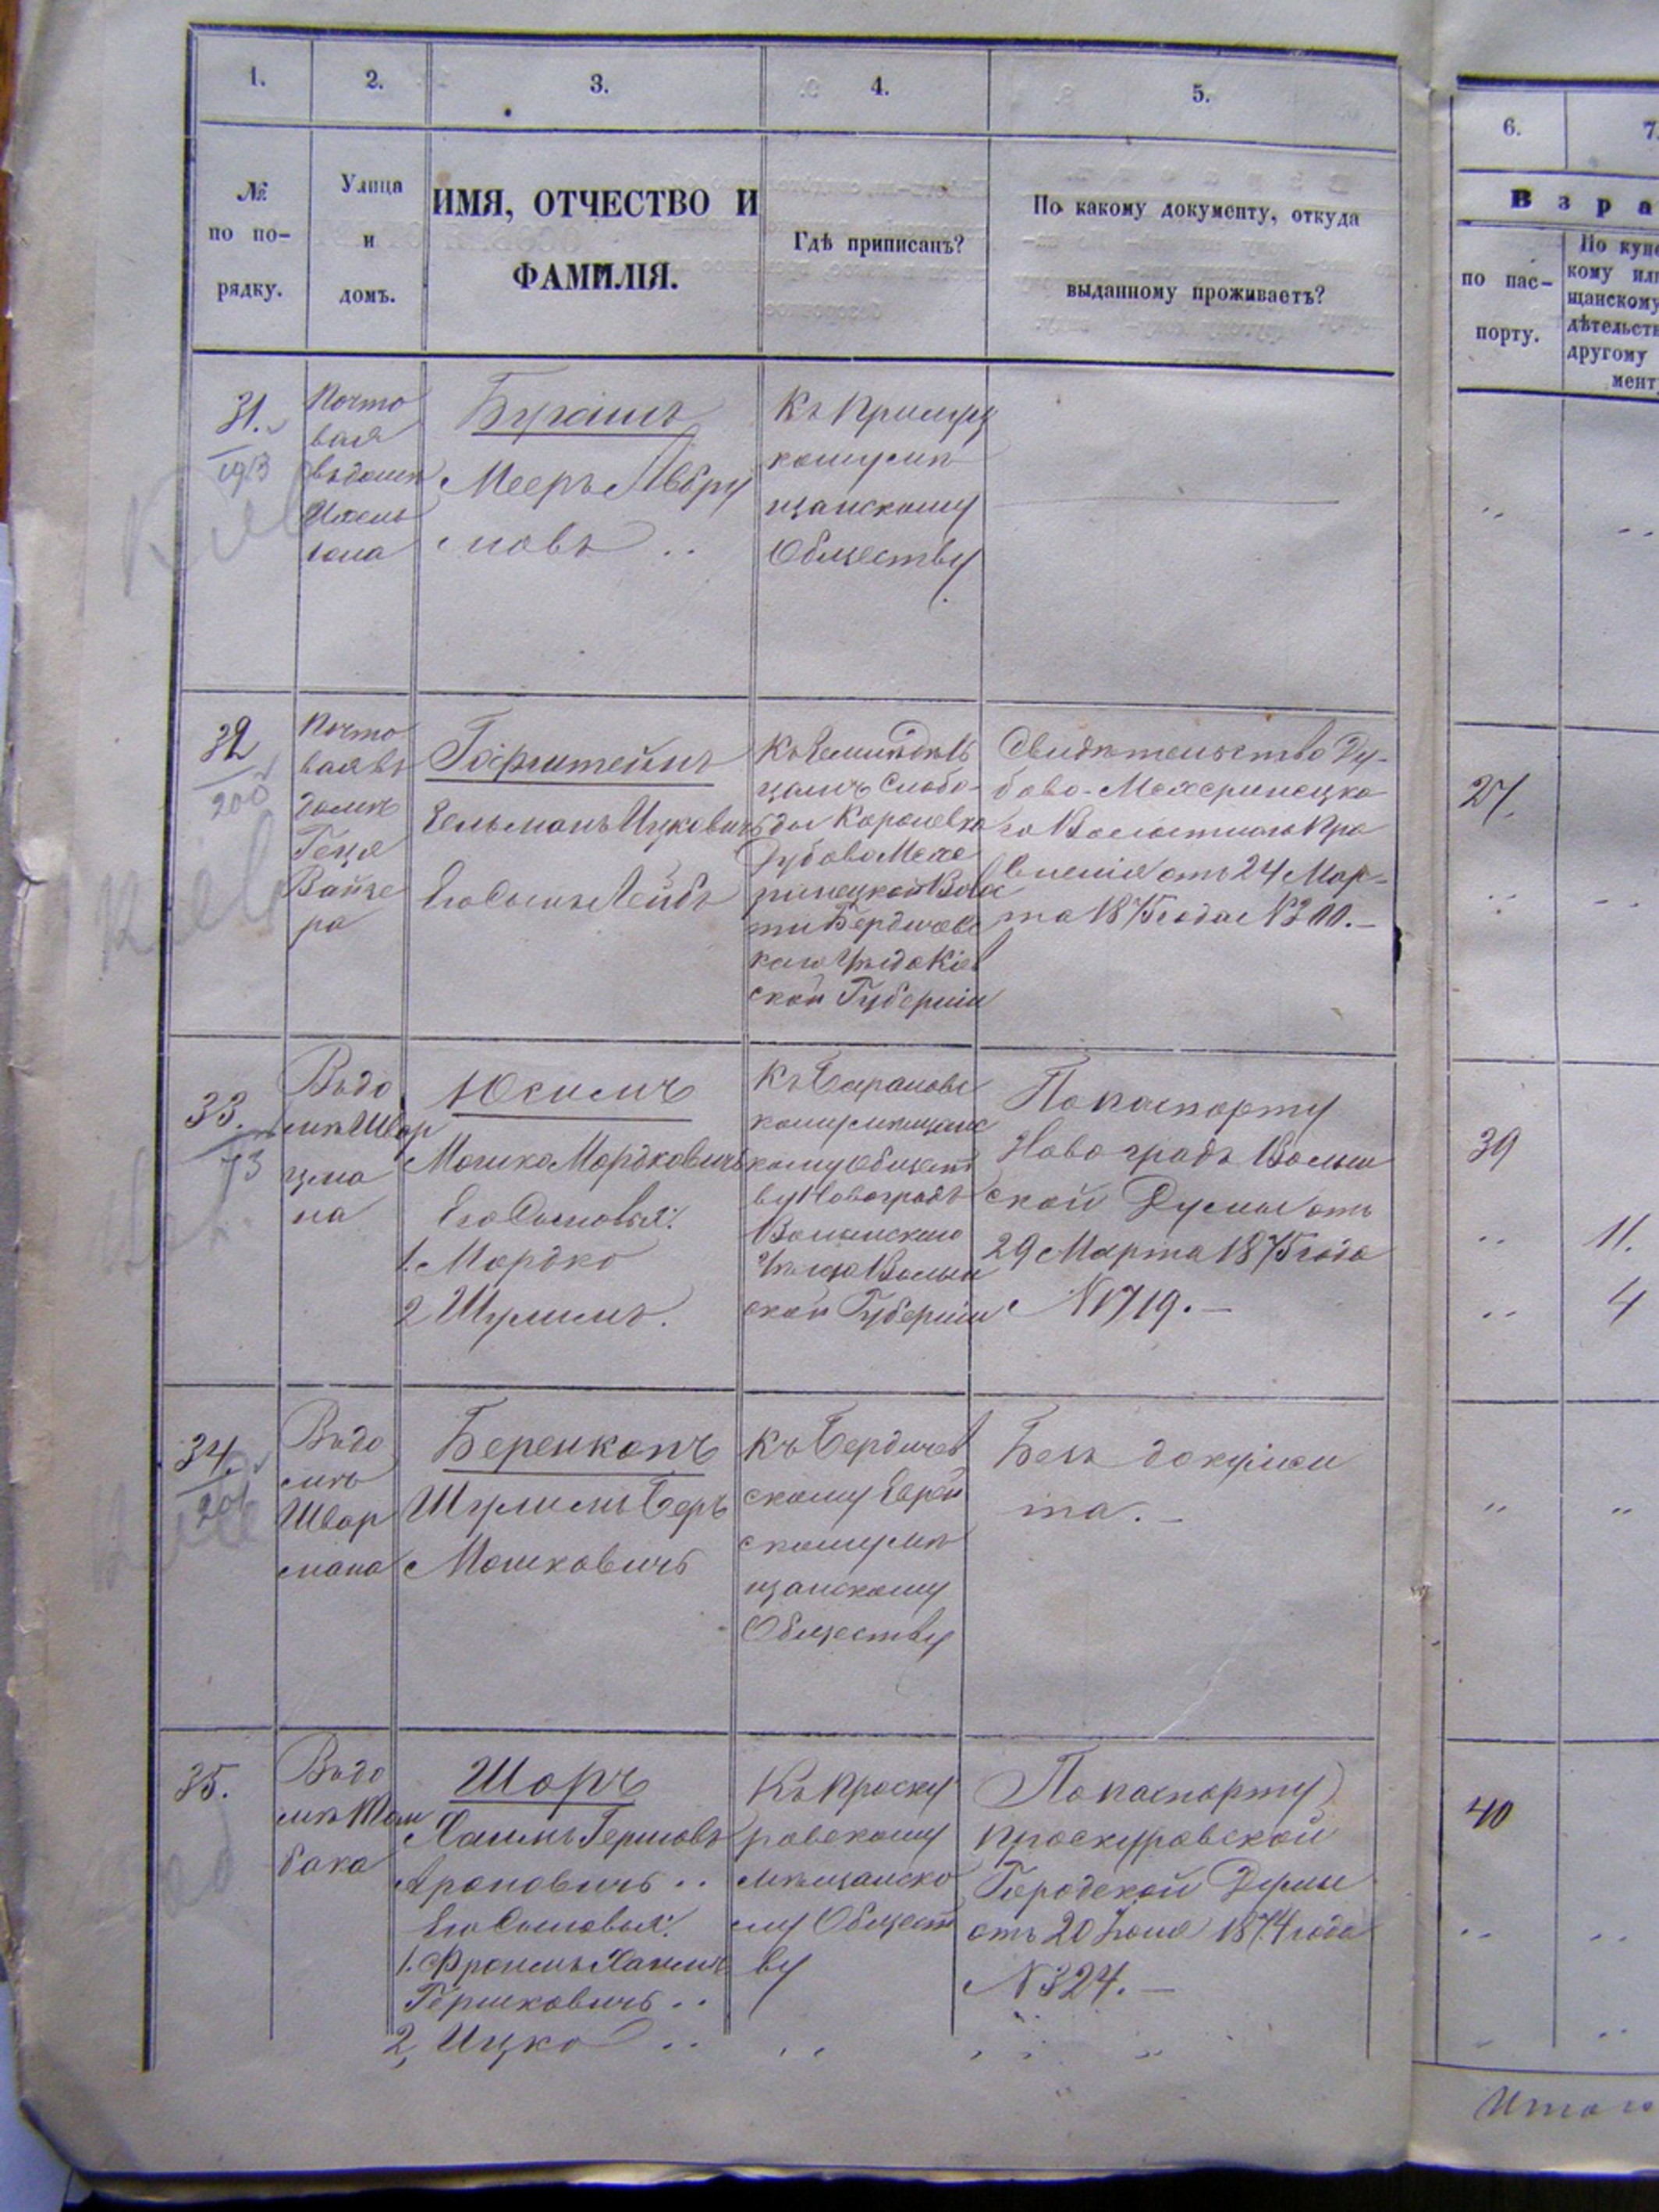 1.
2.
3.
4.
5.
6.
7.
№
по по-
рядку.
Улица
и
домъ.
ИМЯ, ОТЧЕСТВО И
ФАМИЛІЯ.
Гдѣ приписанъ?
По какому документу, откуда
выданному проживаетъ?
В з р а
по пас-
порту.
По купе
кому или
щанскому
дѣтельств
другому
мент
31.
Почто
вая
въ домѣ
Мееръ Абру
мовъ
щанскому
Обществу
32
200
Почто
вая въ
домѣ
Вайзе
ра
Гофштейнъ
Гельманъ Ицковичъ
Его Сынъ Лейбъ
цамъ Слобо-
ды Королевка
Дубово Меже
ринецкой Волос
ти Бердичевс
каго Уѣзда Кіев
ской Губерніи
Свидѣтельство Ду-
бово-Межеринецка
го Волостнаго Пра
вленія отъ 24 Мар-
та 1875 года №300.-
27.
33.
73
Въ до
мѣ Швар
цма
на
Юсимъ
Мошко Мордковичъ
Его Сыновья:
1. Мордко
2 Шулимъ.
Къ Барановс
кому мѣщанс
кому Общест
ву Новоградъ
Волынскаго
Уѣзда Волын
ской Губерніи
По паспорту
Новоградъ Волын
ской Думы отъ
29 Марта 1875 года
№719.-
39
11.
4
34.
201
Въ до
мѣ
Швар
мана
Беренкопъ
Шулимъ Беръ
Мошковичъ
Къ Бердичев
скому Еврей
скому мѣ
щанскому
Обществу
Безъ докумен
та.-
35.
Въ до
бака
Шоръ
Хаимъ Гершовъ
Ароновичъ
Его Сыновья:
1. Фроимъ Хаимъ
Гершковичъ
2, Ицко
Къ Проску
ровскому
мѣщанско
му Общест
ву
По паспорту
Проскуровской
Городской Думы
отъ 20 Іюня 1874 года
№324.-
40
Итого